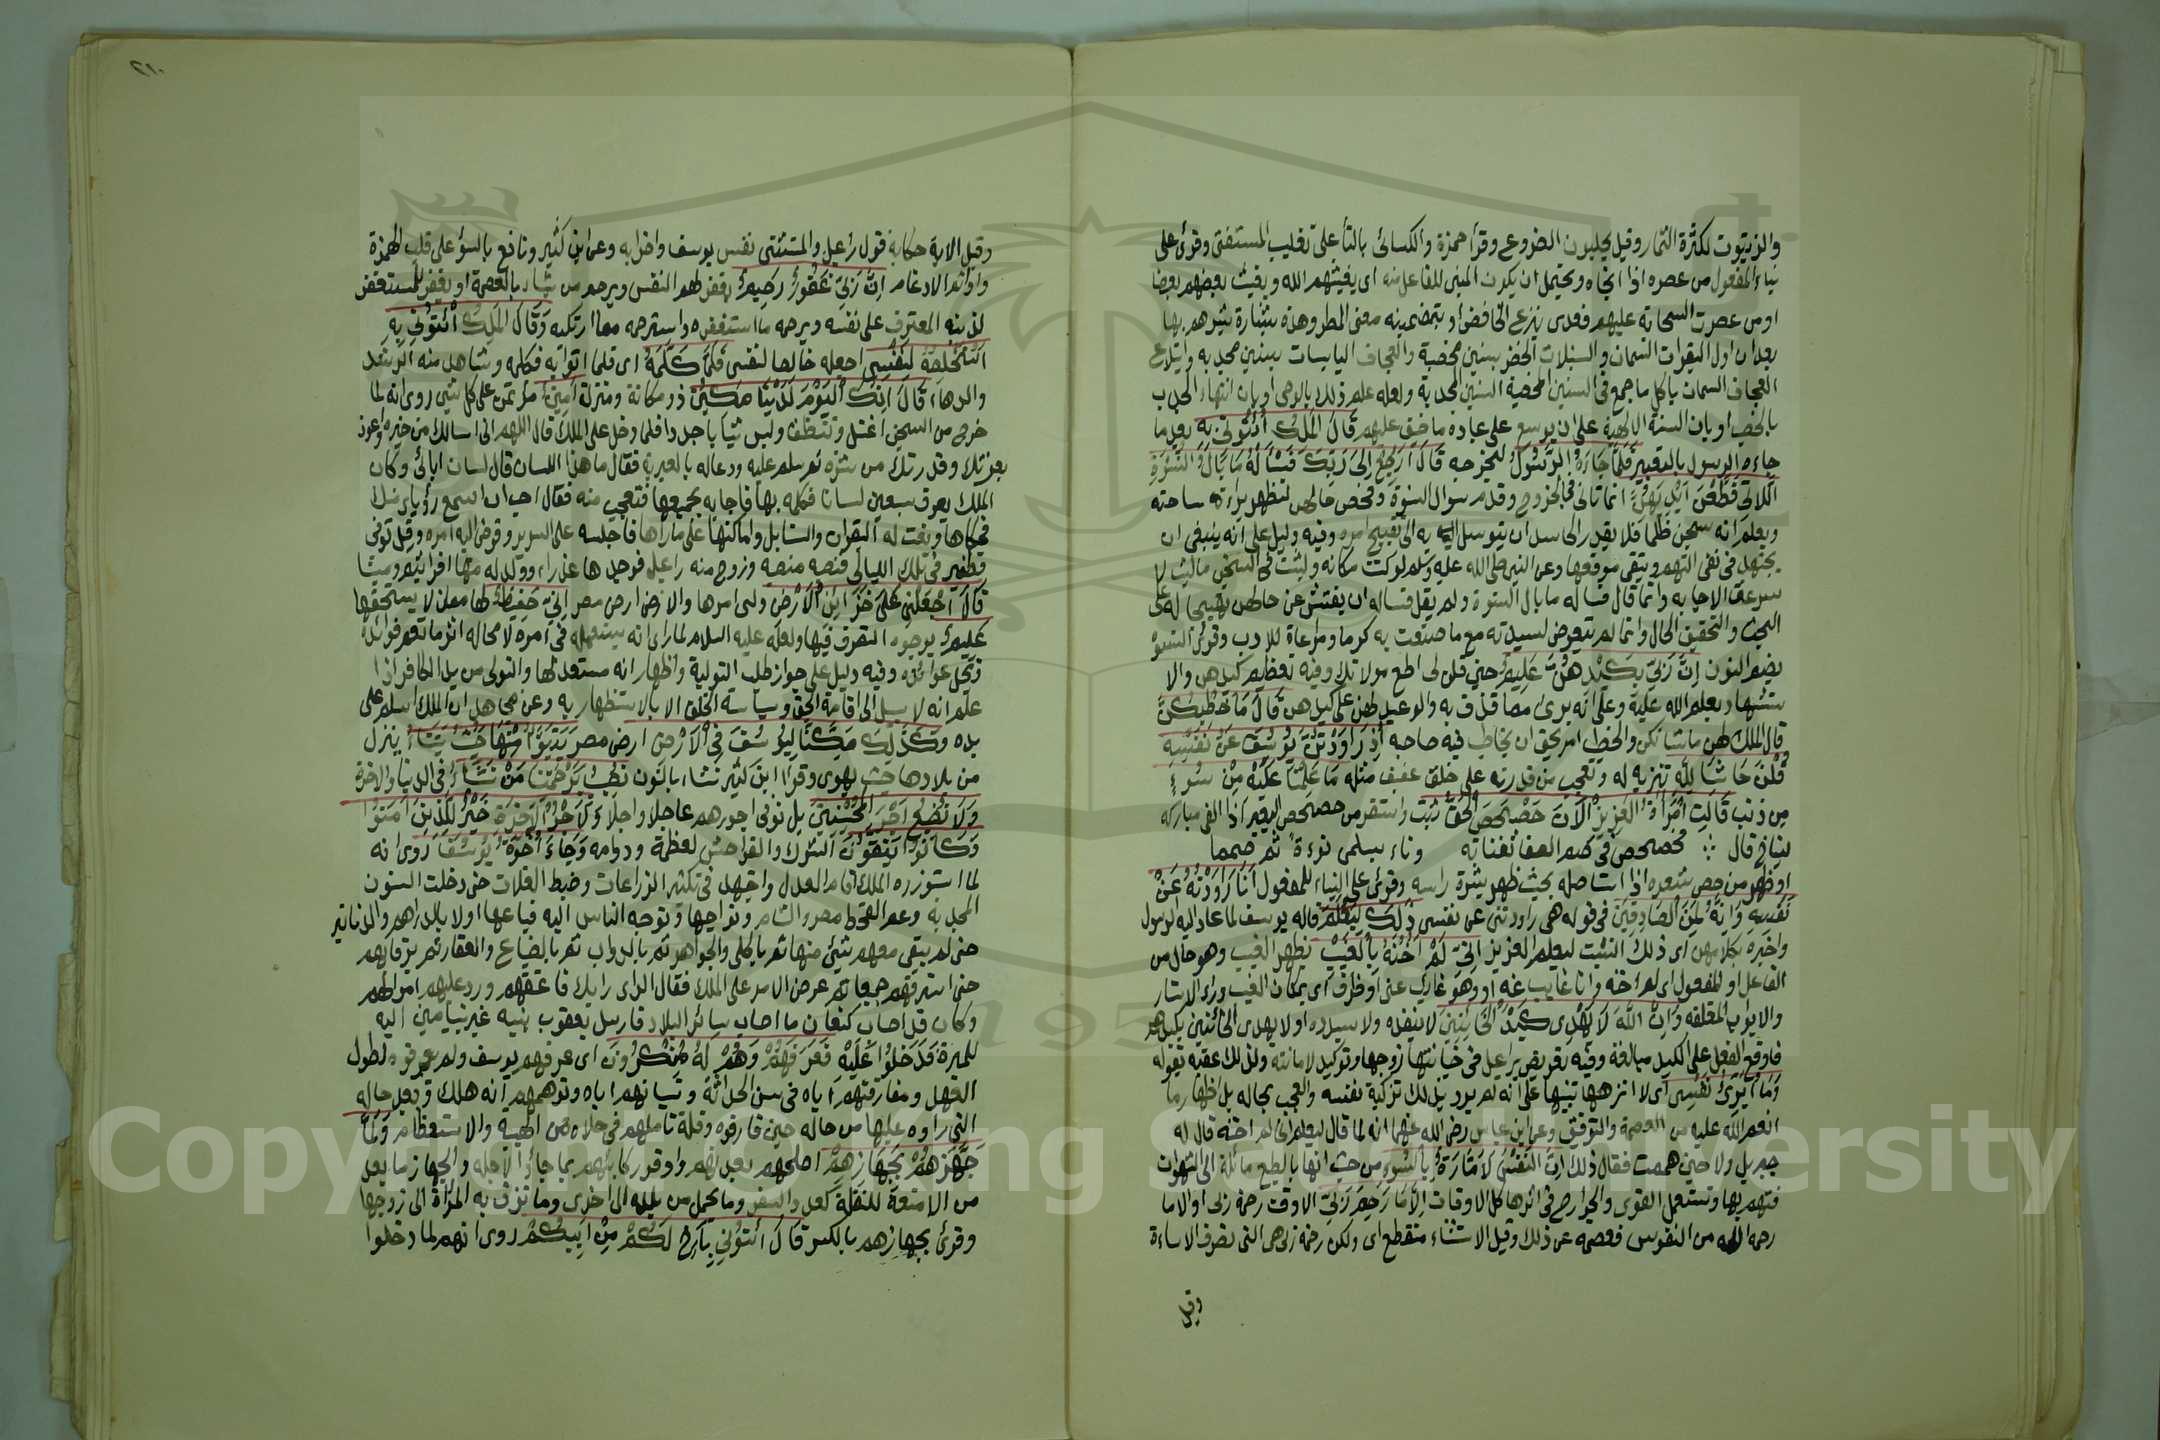 والزيتون لكثرة الثمار وقيل يحلبون الضروع وقرأ حمزة والكسائى بالتا على تغليب المستفتى وقرئ على
بناء المفعول من عصره اذا انجاه ويحتمل ان يكون المبنى للفاعل منه اى يغيثهم الله ويغيث بعضهم بعضا
او من عصرت السحابة عليهم فعدى بنزع الخافض او بتضمينه معنى المطر وهذه بشارة بشرهم بها
بعد ان اول البقرات السمان والسنبلات الخضر بسنين مخصبة والعجاف اليابسات بسنين مجدبه وابتلاع
العجاف السمان باكل ما جمع فى السنين المخصبة السنين المجدبة ولعله علم ذلك بالوحى او بان انتهاء الجدب
بالخصب او بان السنة الالهية على ان يوسع على عباده ما ضيق عليهم قَالَ الْمَلِكُ ائْتُونِى بِهِ بعد ما
جاءه الرسول بالتعبير فَلَمَّا جَاءَهُ الرَّسُولُ ليخرجه قَالَ ارْجِعْ اِلَى رَبِّكَ فَسْأَلْهُ مَا بَالُ النِّسْوَةِ
اللَّاتِى قَطَّعْنَ اَيْدِيَهُنَّ انما تانى فى الخروج وقدم سوال النسوة وفحص حالهن لتظهر براءة ساحته
ويعلم انه سجن ظلما فلا يقدر الحاسد ان يتوسل به الى تقبيح امره وفيه دليل على انه ينبغى ان
يجتهد فى نفى التهم ويتقى مواقعها وعن النبى صلى الله عليه وسلم لو كنت مكانه ولبثت فى السجن ما لبث لا
سرعت الاجابه وانما قال فساله ما بال النسوة ولم يقل فساله ان يفتش عن حالهن تهييجا له على
البحث والتحقيق الحال وانما لم يتعرض لسيدته مع ما صنعت به كرما ومراعاة للادب وقرئ النسوة
بضم النون اِنَّ رَبِّى بِكَيْدِهِنَّ عَلِيمٌ حين قلن لى اطع مولاتك وفيه تعظيم كيدهن والا
ستشهاد بعلم الله عليه وعلى انه برئ مما قذف به والوعيد لهن على كيدهن قَالَ مَا خَطْبُكُنَّ
قال الملك لهن ما شانكن والخطب امر يحق ان يخاطب فيه صاحبه اِذْ رَاوَدْتُنَّ يُوسُفَ عَنْ نَفْسِهِ
قُلْنَ حَاشَا لِلَّهِ تنزيه له وتعجب من قدرته على خلق عفيف مثله مَا عَلِمْنَا عَلَيْهِ مِنْ سُوءٍ
من ذنب قَالَتِ امْرَأَةُ الْعَزِيزِ الْآنَ حَصْحَصَ الْحَقُّ ثبت واستقر من حصحص البعير اذا القى مباركه
ليناخ قال ∴ فحصحص فى صم الصفا ثفناته وناء بسلمى نوءة ثم صمما
او ظهر من حص شعره اذا استاصله بحيث ظهر بشرة راسه وقرئ على البناء للمفعول اَنَا رَاوَدْتُهُ عَنْ
نَفْسِهِ وَاِنَّهُ لَمِنَ الصَّادِقِينَ فى قوله هى راودتنى عن نفسى ذَلِكَ لِيَعْلَمَ قاله يوسف لما عاد اليه الرسول
واخبره بكلامهن اى ذلك التثبت ليعلم العزيز اَنِّى لَمْ اَخُنْهُ بِالْغَيْبِ بظهر الغيب وهو حال من
الفاعل او المفعول اى لم اخنه وانا غايب عنه او وهو غايب عنى او ظرف اى بمكان الغيب وراء الاستار
والابواب المغلقه وَاَنَّ اللَّهَ لَا يَهْدِى كَيْدَ الْخَائِنِينَ لا ينفذه ولا يسدده او لا يهدى الخائنين بكيدهم
فاوقع الفعل على الكيد مبالغة وفيه تعريض براعيل فى خيانتها زوجها وتوكيد لامانته ولذلك عقبه بقوله
وَمَا اُبَرِّئُ نَفْسِى اى لا انزهها تنبيها على انه لم يرد بذلك تزكية نفسه والعجب بحاله بل اظهار ما
انعم الله عليه من العصمة والتوفيق وعن ابن عباس رضى الله عنهما انه لما قال ليعلم انى لم اخنه قال له
جبريل ولا حين هممت فقال ذلك اِنَّ النَّفْسَ لَاَمَّارَةٌ بِالسُّوءِ من حيث انها بالطبع مائلة الى الشهوات
فتهم بها وتستعمل القوى والجوارح فى اثرها كل الاوقات اِلَّا مَا رَحِمَ رَبِّى الا وقت رحمة ربى او الا ما
رحمه الله من النفوس فعصمه عن ذلك وقيل الاستثناء منقطع اى ولكن رحمة ربى هى التى تصرف الاساءة
وقيل
٢١٠
وقيل الاية حكاية قول راعيل والمستثنى نفس يوسف واضرابه وعن ابن كثير ونافع بالسو على قلب الهمزة
واوا ثم الادغام اِنَّ رَبِّى غَفُورٌ رَحِيمٌ يغفر لهم النفس ويرحم من شاء بالعصمة او يغفر للمستغفر
لذنبه المعترف على نفسه ويرحمه ما استغفره واسترحمه مما ارتكبه وَقَالَ الْمَلِكُ ائْتُونِى بِهِ
اَسْتَخْلِصْهُ لِنَفْسِى اجعله خالصا لنفسى فَلَمَّا كَلَّمَهُ اى فلما اتوا به فكلمه وشاهد منه الرشد
والدهاء قَالَ اِنَّكَ الْيَوْمَ لَدَيْنَا مَكِينٌ ذو مكانة ومنزلة اَمِينٌ مؤتمن على كل شىء روى انه لما
خرج من السجن اغتسل وتنظف ولبس ثيابا جددا فلما دخل على الملك قال اللهم انى اسالك من خيره واعوذ
بعزتك وقدرتك من شره ثم سلم عليه ودعا له بالعبرية فقال ما هذا اللسان قال لسان ابائى وكان
الملك يعرف سبعين لسانا فكلمه بها فاجابه بجميعها فتعجب منه فقال احب ان اسمع رؤياى منك
فحكاها ونعت له البقرات والسنابل واماكنها على ما راها فاجلسه على السرير وفوض اليه امره وقيل توفى
قطفير فى تلك الليالى فنصبه منصبه وزوج منه راعيل فوجدها عذراء وولد له منها افرائيم وميشا
قَالَ اجْعَلْنِى عَلَى خَزَائِنِ الْاَرْضِ ولنى امرها والارض ارض مصر اِنِّى حَفِيظٌ لها ممن لا يستحقها
عَلِيمٌ بوجوه التصرف فيها ولعله عليه السلام لما راى انه يستعمله فى امره لا محاله اثر ما تعم فوائده
وتجل عوائده وفيه دليل على جواز طلب التولية واظهار انه مستعد لها والتولى من يد الكافر اذا
علم انه لا سبيل الى اقامة الحق وسياسة الخلق الا بالاستظهار به وعن مجاهد ان الملك اسلم على
يده وَكَذَلِكَ مَكَّنَّا لِيُوسُفَ فِى الْاَرْضِ ارض مصر يَتَبَوَّأُ مِنْهَا حَيْثُ يَشَاءُ ينزل
من بلادها حيث يهوى وقرأ ابن كثير نشاء بالنون نُصِيبُ بِرَحْمَتِنَا مَنْ نَشَاءُ فى الدنيا والاخرة
وَلَا نُضِيعُ اَجْرَ الْمُحْسِنِينَ بل نوفى اجورهم عاجلا واجلا وَلَاَجْرُ الْآخِرَةِ خَيْرٌ لِلَّذِينَ آمَنُوا
وَكَانُوا يَتَّقُونَ الشرك والفواحش لعظمه ودوامه وَجَاءَ اِخْوَةُ يُوسُفَ روى انه
لما استوزره الملك اقام العدل واجتهد فى تكثير الزراعات وضبط الغلات حتى دخلت السنون
المجدبة وعم القحط مصر والشام ونواحيها وتوجه الناس اليه فباعها اولا بالدراهم والدنانير
حتى لم يبق معهم شىء منها ثم بالحلى والجواهر ثم بالدواب ثم بالضياع والعقار ثم برقابهم
حتى استرقهم جميعا ثم عرض الامر على الملك فقال الراى رايك فاعتقهم ورد عليهم اموالهم
وكان قد اصاب كنعان ما اصاب سائر البلاد فارسل يعقوب بنيه غير بنيامين اليه
للميرة فَدَخَلُوا عَلَيْهِ فَعَرَفَهُمْ وَهُمْ لَهُ مُنْكِرُونَ اى عرفهم يوسف ولم يعرفوه لطول
العهد ومفارقتهم اياه فى سن الحداثة ونسيانهم اياه وتوهمهم انه هلك وبعد حاله
التى راوه عليها من حاله حين فارقوه وقلة تاملهم فى حلاه من الهيبه والاستعظام وَلَمَّا
جَهَّزَهُمْ بِجَهَازِهِمْ اصلحهم بعدتهم واوقر ركائبهم بما جاؤا لاجله والجهاز ما يعد
من الامتعة للنقلة كعدد السفر وما يحمل من بلدة الى اخرى وما تزف به المرأة الى زوجها
وقرئ بجهازهم بالكسر قَالَ ائْتُونِى بِاَخٍ لَكُمْ مِنْ اَبِيكُمْ روى انهم لما دخلوا
Copyright © King Saud University
1957